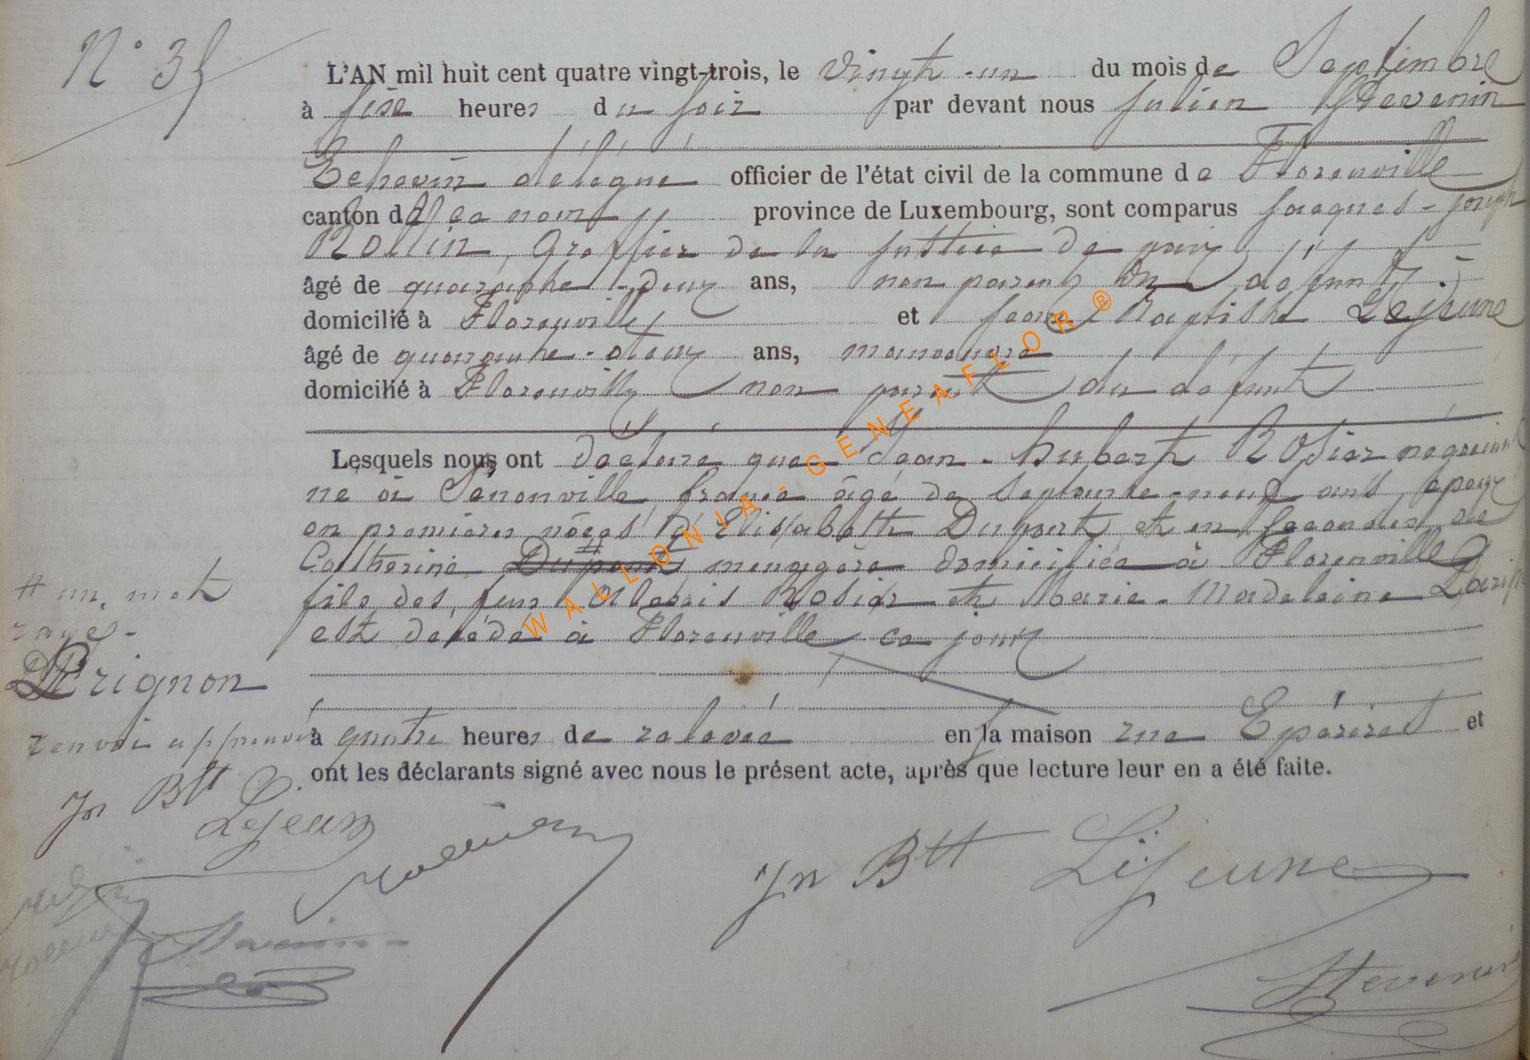 N° 35
L'AN mil huit cent quatre vingt-trois, le vingt-un du mois de Septembre
à sise heures du soir par devant nous Julien Stevenin
Echevin délégué officier de l'état civil de la commune de Florenville
canton d province de Luxembourg, sont comparus Jacques-Joseph
Rollin, Greffier de la justice de paix
âgé de quarante-deux ans, non parent du défunt
domicilié à Florenville et Jean Baptiste Lejeune
âgé de quarante-deux ans, manoeuvre
domicilié à Florenville non parent du défunt
Lesquels nous ont déclaré que Jean-hubert Rosier négociant
né à france âgé de septante-neuf ans, époux
en premières noces d'Elisabeth Dupont et en secondes de
Catherine Dupont menagère domiciliée à Florenville
fils des feus Rosier et Marie-Madelaine
est décédé à Florenville ce jour
à quatre heures de relevée en la maison rue et
ont les déclarants signé avec nous le présent acte, après que lecture leur en a été faite.
# un mot
rayé-
Perignon
renvoi approuvé
Jn Btt
Lejeune
Jn Btt Lejeune
Stevenin
WALLONIA-GENEAFLOR®